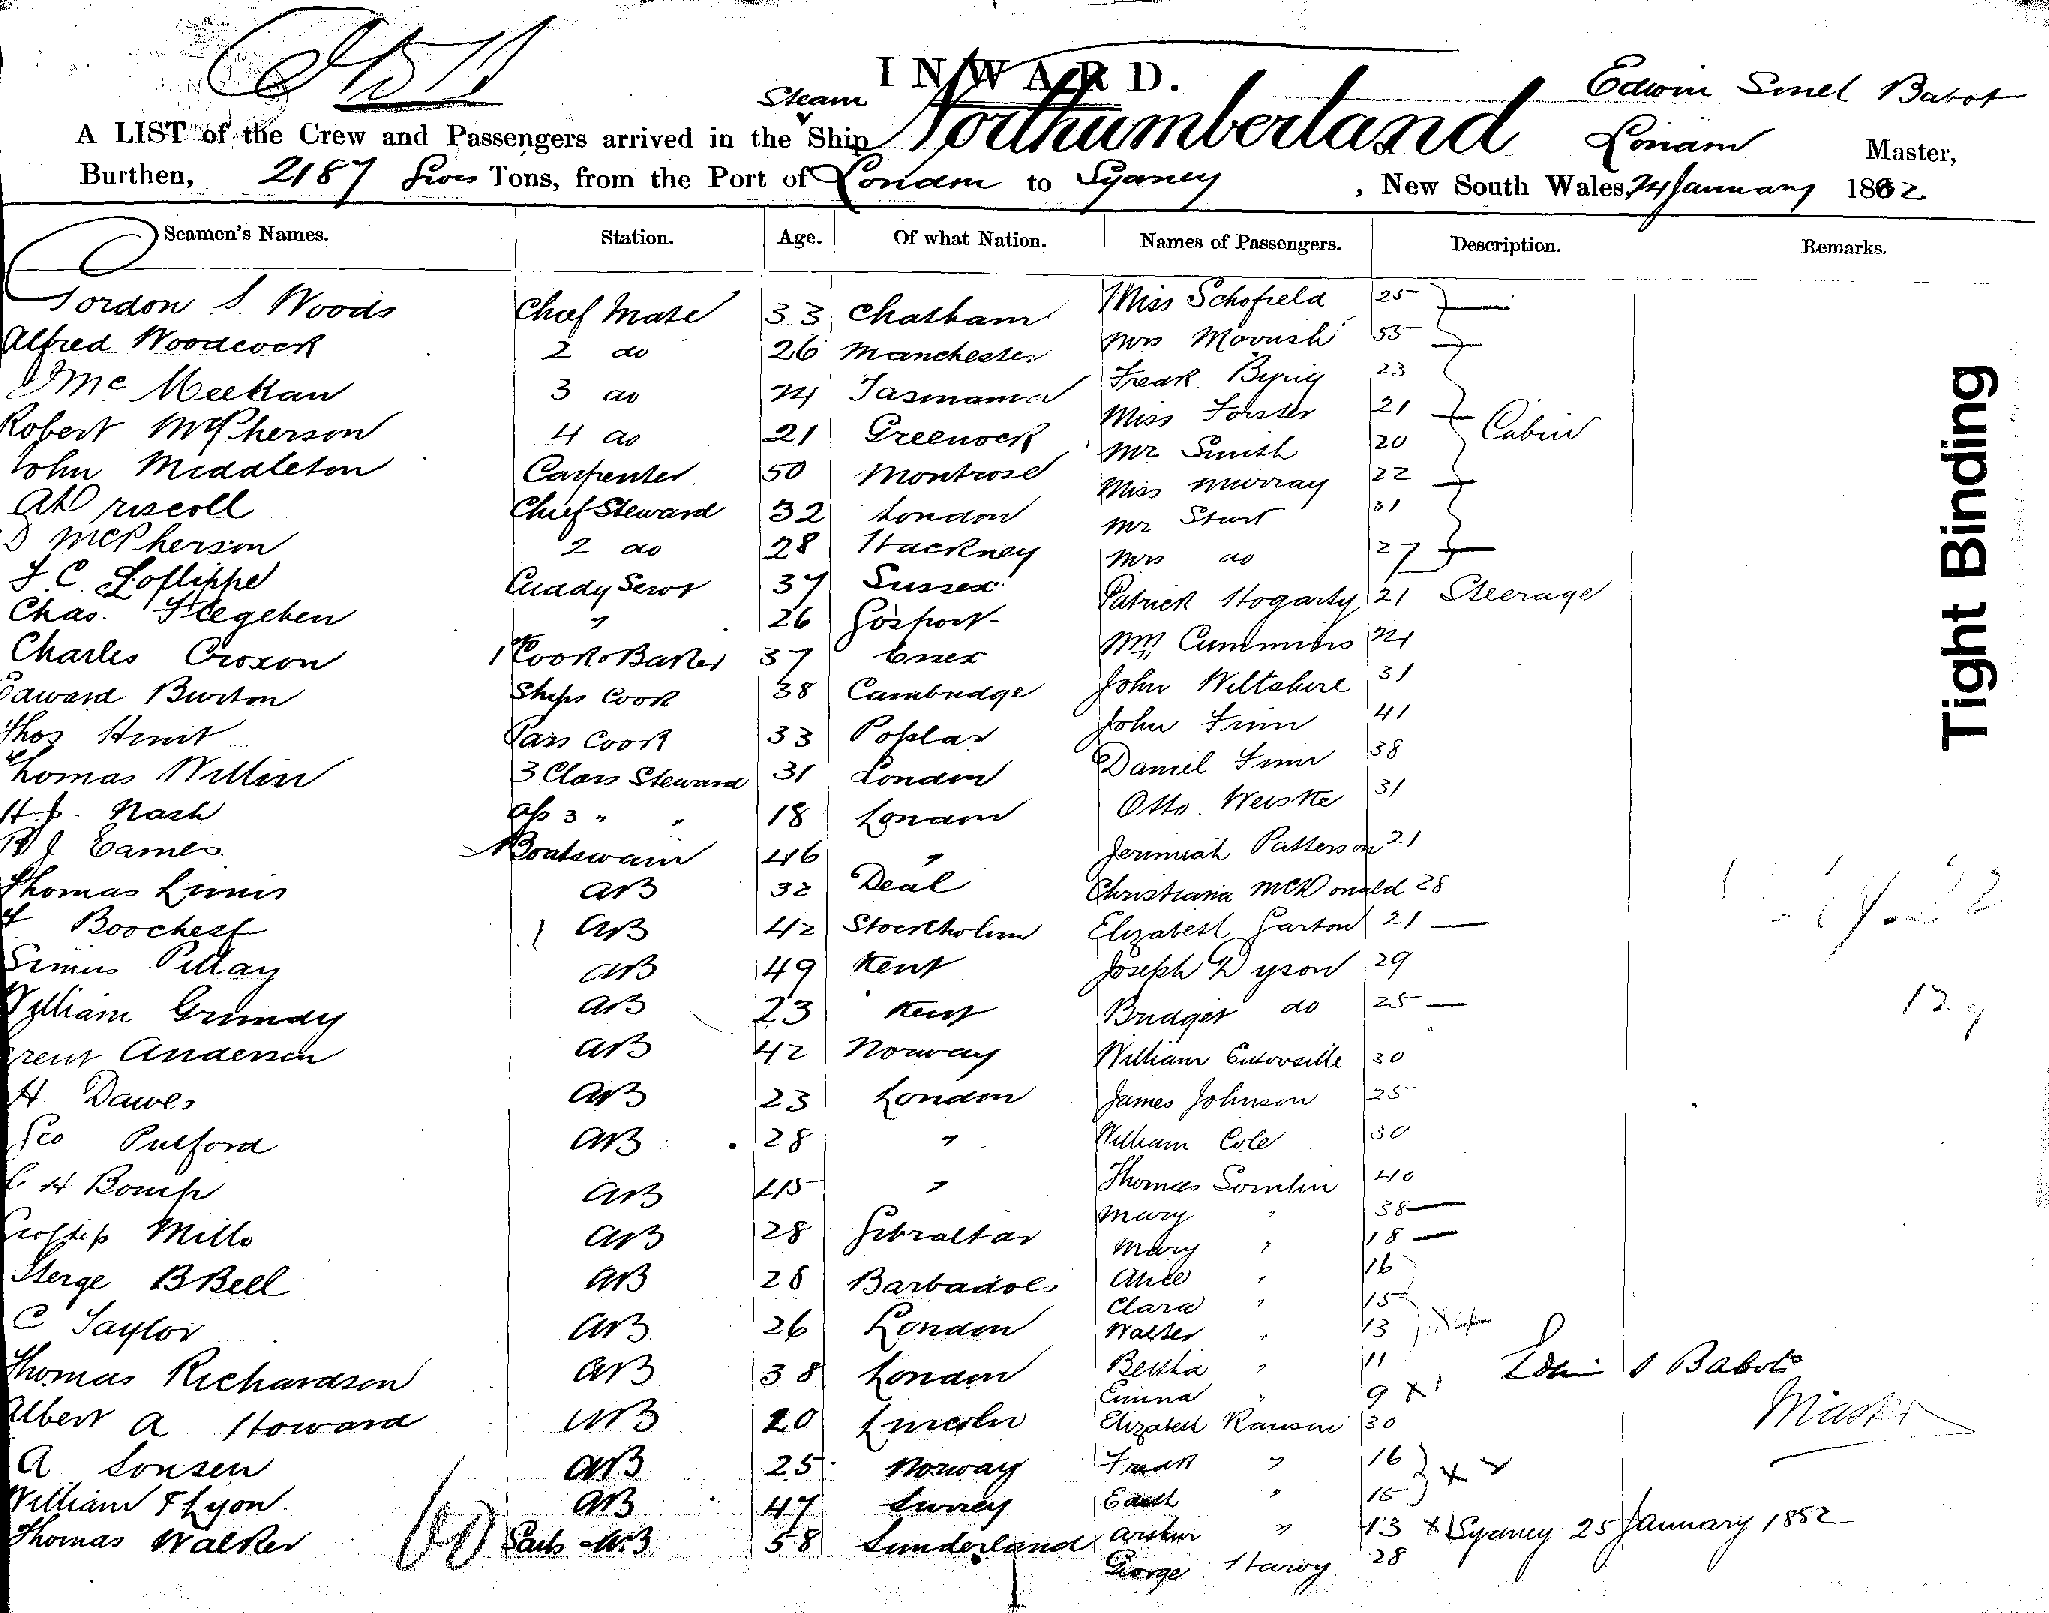 INWARD.
Edwin Sinel Babot
Steam
A LIST of the Crew and Passengers arrived in the Ship Northumberland London Master,
Burthen, 2187 Gross Tons, from the Port of London to Sydney , New South Wales, 24 January 1882
Seamen's Names. Station. Age. Of what Nation. Names of Passengers. Description. Remarks.
Gordon S. Woods Chief Mate 33 Chatham Miss Schofield 25
Alfred Woodcock 2 do 26 Manchester Mrs 55
McMeekan 3 do 24 Tasmania Fredk 23
Robert McPherson 4 do 21 Greenock Miss Forster 21 Cabin
John Middleton Carpenter 50 Montrose Mr Smith 20
A Driscoll Chief Steward 32 London Miss Murray 22
D McPherson 2 do 28 Hackney Mr Sturt 31
F. C. Cuddy Servt 37 Sussex Mrs do 27
Chas. Stegeben " 26 Gosport Patrick Hogarty 21 Steerage
Charles Croxon 1st Cook & Baker 37 Essex Cummins 24
Edward Burton Ships Cook 38 Cambridge John Wiltshire 31
Thos Hunt Pass Cook 33 Poplar John Finn 41
Thomas Willin 3 Class Steward 31 London Daniel Finn 38
H. J. Nash 3 " " 18 London Otto Weiske 31
R J Eames Boatswain 46 " Jerimiah Patterson 21
Thomas AB 32 Deal Christiana McDonald 28
Boochest AB 42 Stockholm Elizabeth Garton 21
Pillay AB 49 Kent Joseph Dyson 29
William Grundy AB 23 Kent Bridget do 25
Anderson AB 42 Norway William 30
H Dawes AB 23 London James Johnson 25
Geo Pulford AB 28 " William Cole 30
H Bomp AB 45 " Thomas Tomlin 40
Mary " 38
Mills AB 28 Gibraltar Mary " 18
B Bell AB 28 Barbadoes Alice " 16
Clara " 15
C Taylor AB 26 London Walter " 13
Thomas Richardson AB 38 London Bertha " 11 Edwin S Babot
Emma " 9 x Master
Albert A Howard AB 20 Lincoln Elizabeth Ranson 30
A Sonsen AB 25 Norway Fredk " 16 x x
William F Lyon AB 47 Surrey Edith " 15
Thomas Walker AB 58 Sunderland Arthur " 13 x Sydney 25 January 1882
George Harvy 28
Tight Binding